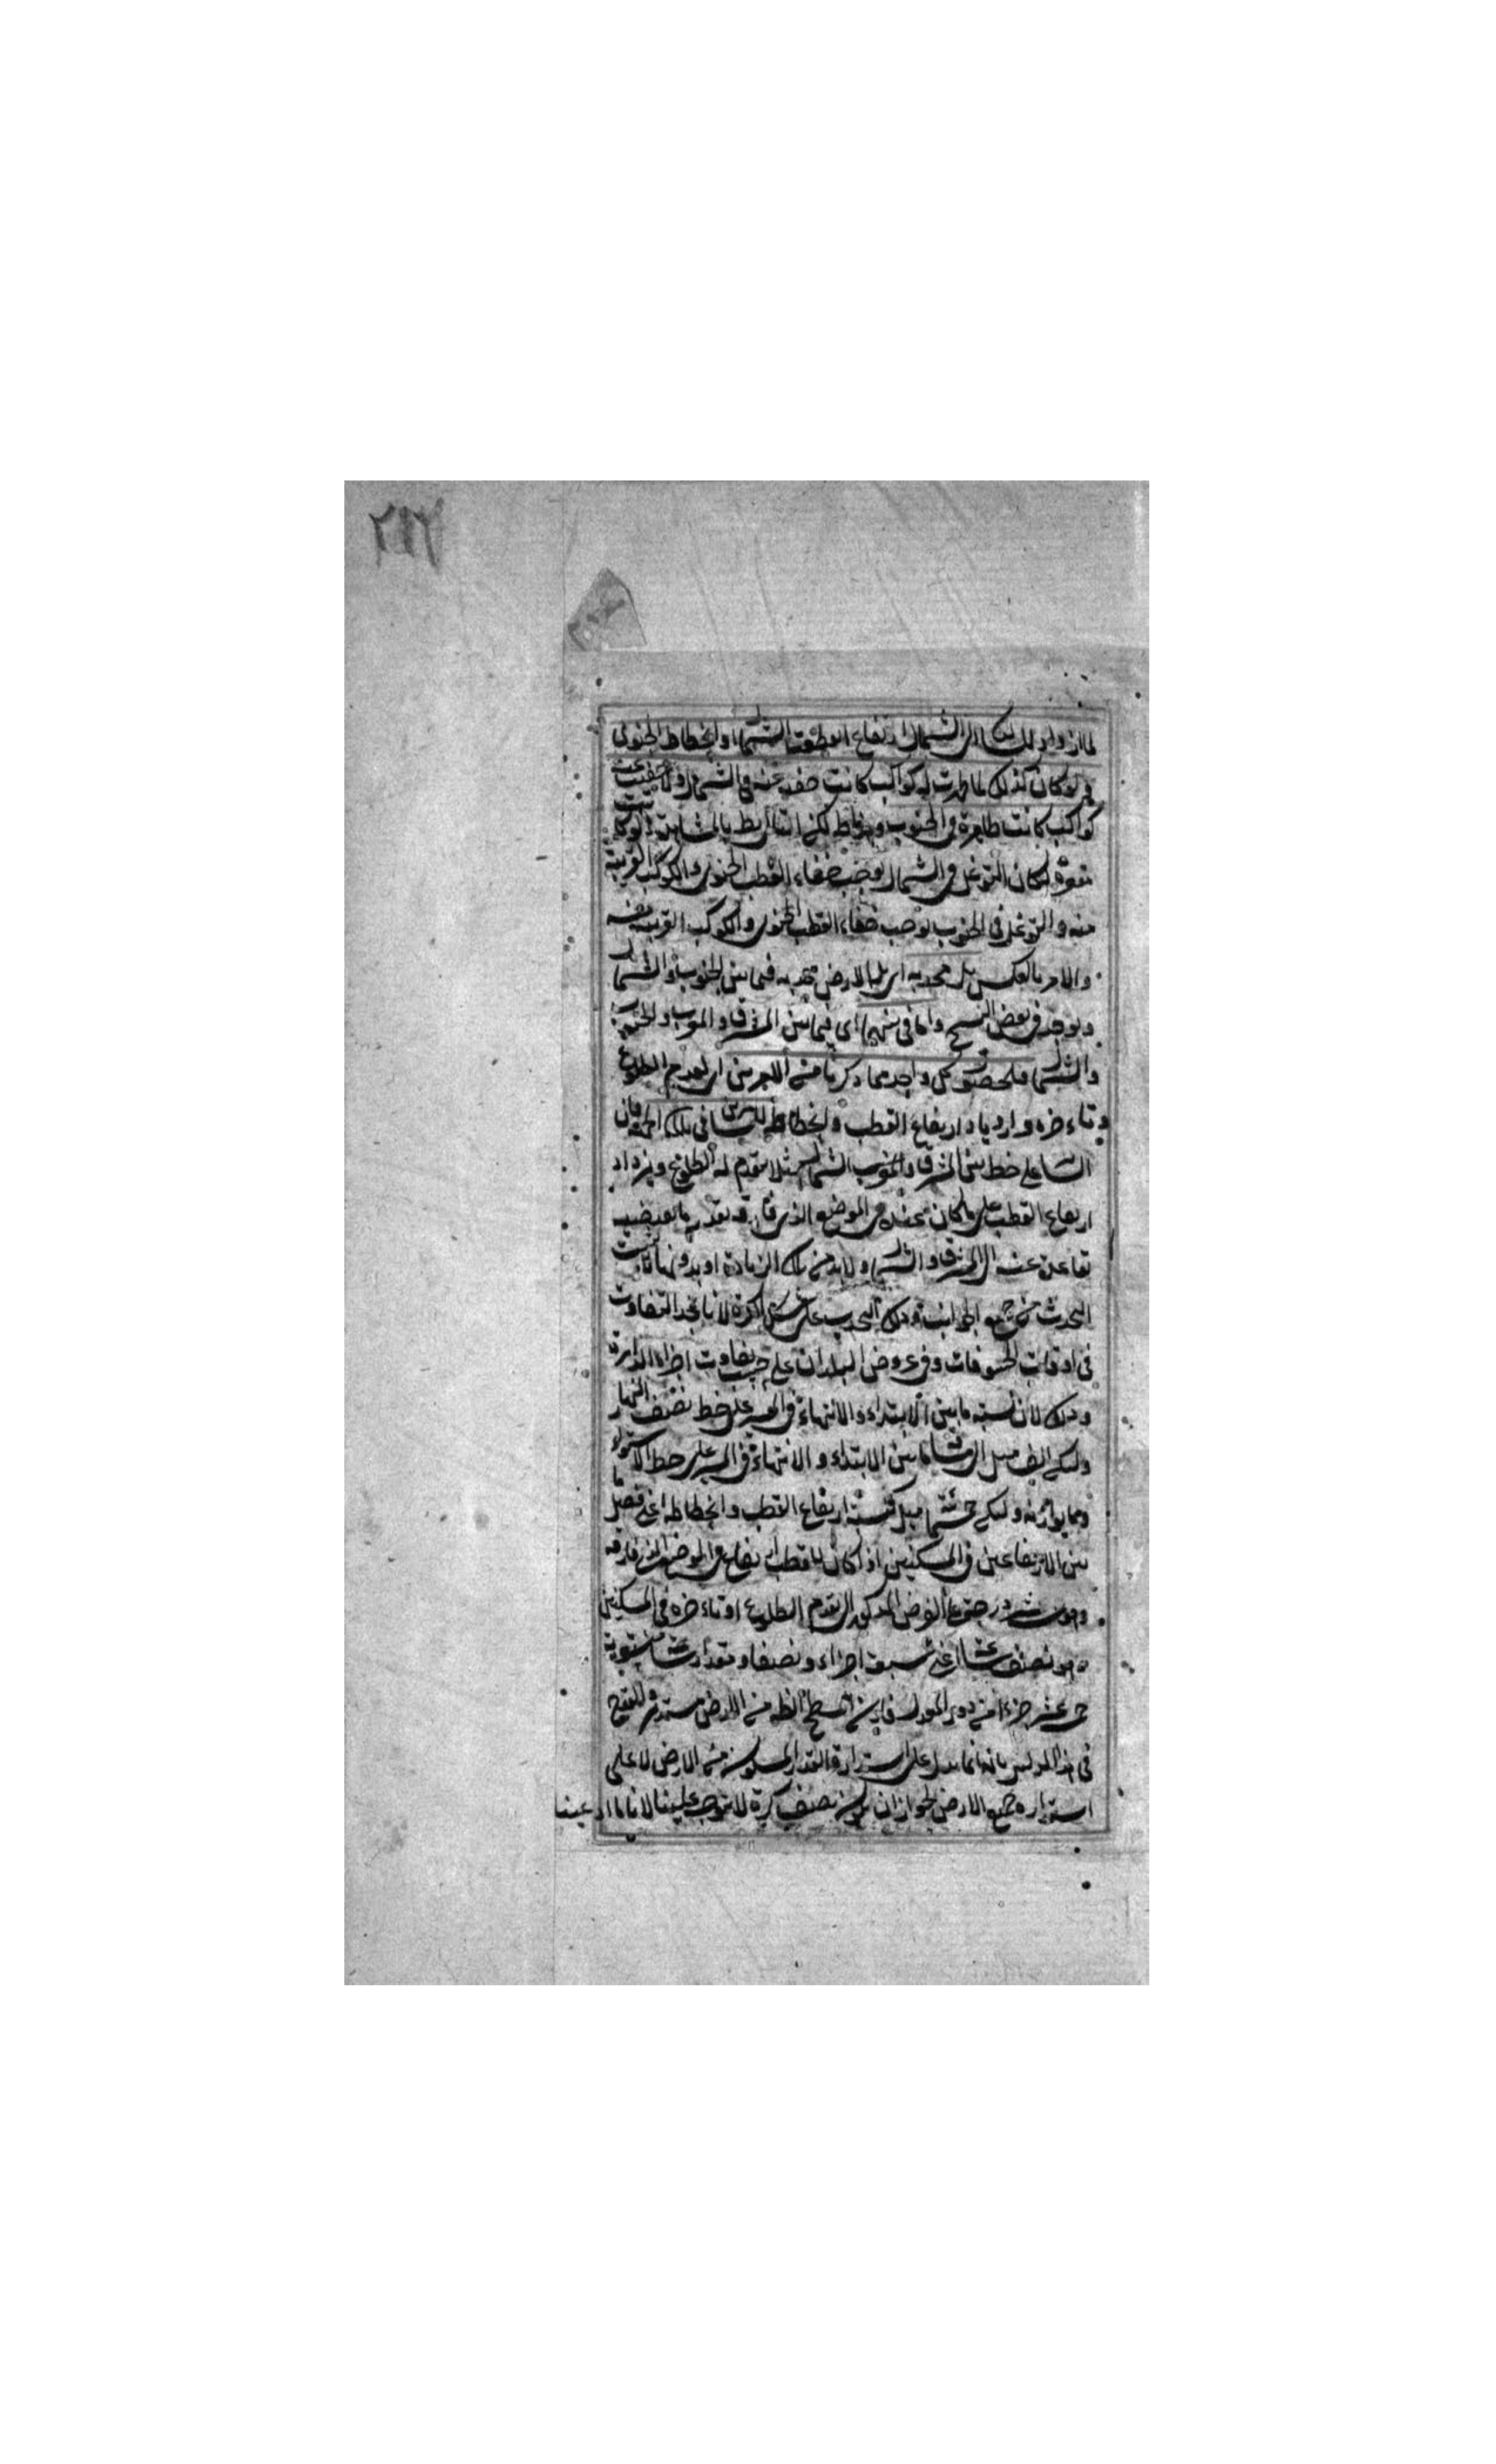 ٢١٦
لما ازداد للسالك الى الشمال ارتفاع القطب الشمالى وانحطاط الجنوبى
ولو كان كذلك لما ظهرت له كواكب كانت خفية عنه فى الشمال ولا خفيت عنه
كواكب كانت ظاهرة فى الجنوب وهو باطل لكن انتفاء بالمشاهدة ولو كانت
مقعرة لكان التوغل فى الشمال يوجب خفاء القطب الجنوبى والكواكب القريبة
منه والتوغل فى الجنوب يوجب خفاء القطب الجنوبى والكواكب القريبة منه
والامر بالعكس بل محدبة اى بل الارض محدبة فيما بين الجنوب والشمال
ويوجد فى بعض النسخ واما فى بينهما اى فيما بين المشرق والمغرب والجنوب
والشمال فلحصول كل واحد مما ذكرنا من الامرين اى تقدم الطلوع
وتاءخره وازدياد ارتفاع القطب وانحطاطه للسائرين فى تلك الجهة فان
السائر على خط بين المشرق والمغرب الشمالى مثلا يتقدم له الطلوع ويزداد
ارتفاع القطب على ما كان عنده فى الموضع الذى فارقه بقدر ما يقتضيه
تباعده عنه الى المشرق والشمال ولا بد من تلك الزيادة او بدونها ثابت
التحدب من جميع الجوانب وذلك التحدب على شكل الكرة لانا نجد التفاوت
فى اوقات الخسوفات وفى عروض البلدان على حسب تفاوت اجزاء الدايرة
وذلك لان نسبة ما بين الابتداء والانتهاء فى السير على خط نصف النهار
وليكن الف ميل الى ما بين الابتداء والانتهاء فى السير على خط الاستواء
وما يوازيه وليكن خمسمائة ميل كنسبة ارتفاع القطب وانحطاطه اعنى فضل ما
بين الارتفاعين فى المسكنين اذا كان للقطب ارتفاع فى الموضع الذى فارقه
وهو درجة على الفرض المذكور الى تقدم الطلوع او تاءخره فى المسكنين
وهو نصف ساعة اعنى سبعة اجزاء ونصفا ومقدار ساعة مستوية
خمسة عشر جزءا من دور المعدل فاذن السطح الظاهر من الارض مستدير ولا يقدح
فى هذا الدليل بانه انما يدل على استدارة القدر المسكون من الارض لا على
استدارة جميع الارض لجواز ان يكون نصف كرة لا يتوجه علينا لانا ما ادعينا